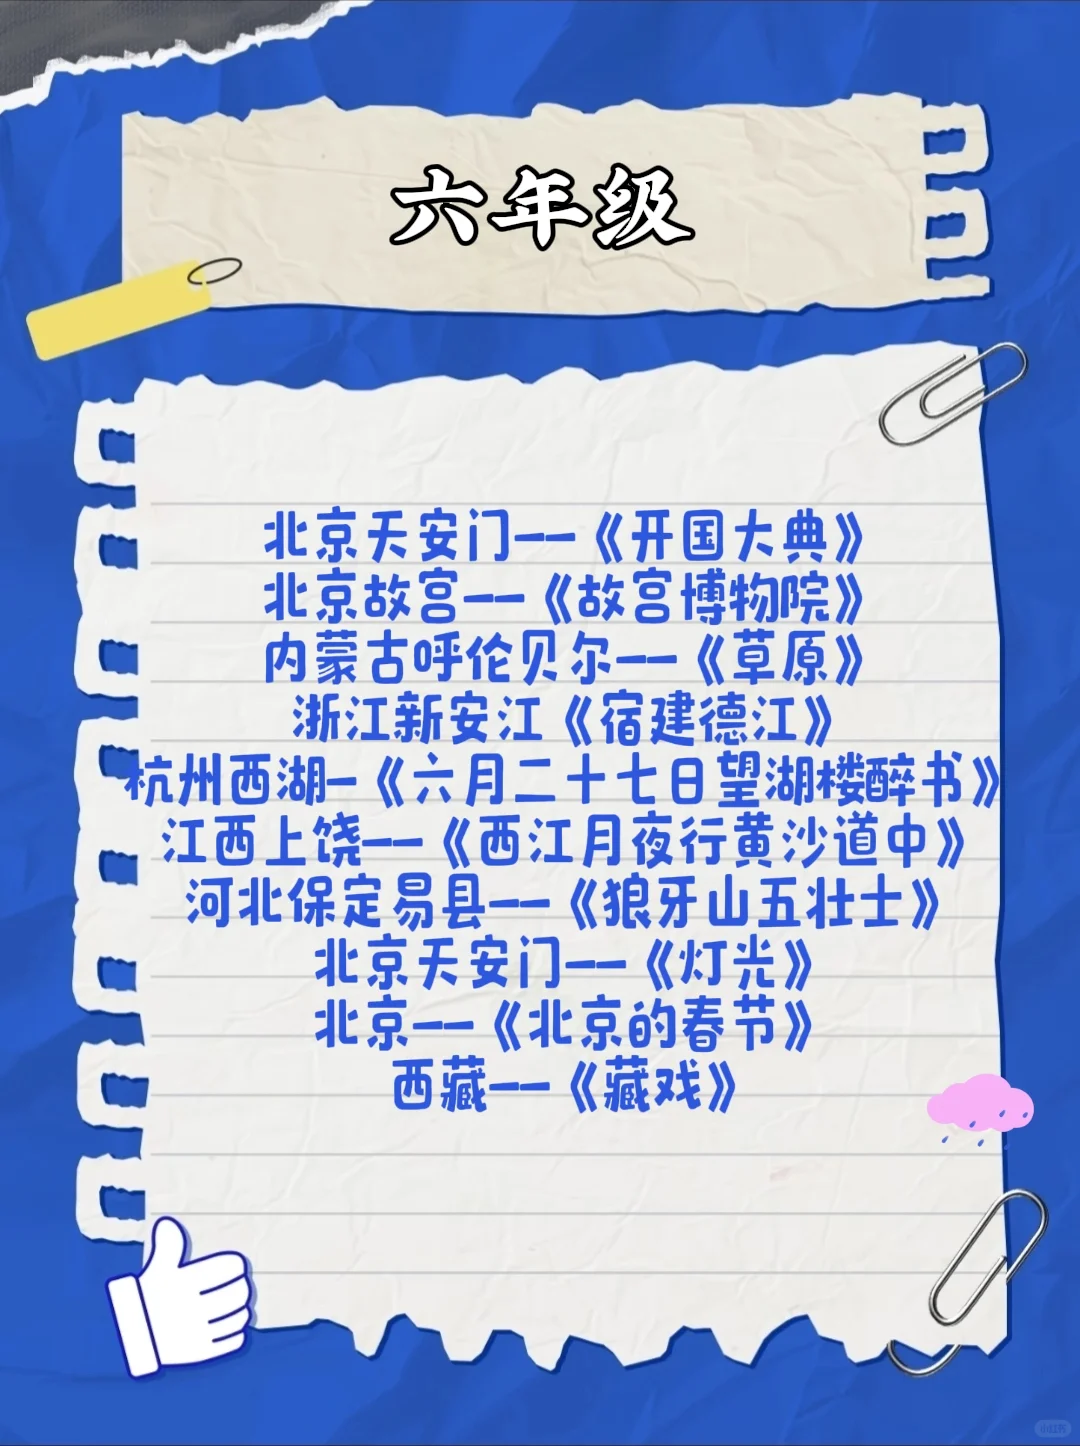 六年级
北京天安门--《开国大典》
北京故宫--《故宫博物院》
内蒙古呼伦贝尔--《草原》
浙江新安江《宿建德江》
杭州西湖-《六月二十七日望湖楼醉书》
江西上饶--《西江月夜行黄沙道中》
河北保定易县--《狼牙山五壮士》
北京天安门--《灯光》
北京--《北京的春节》
西藏--《藏戏》